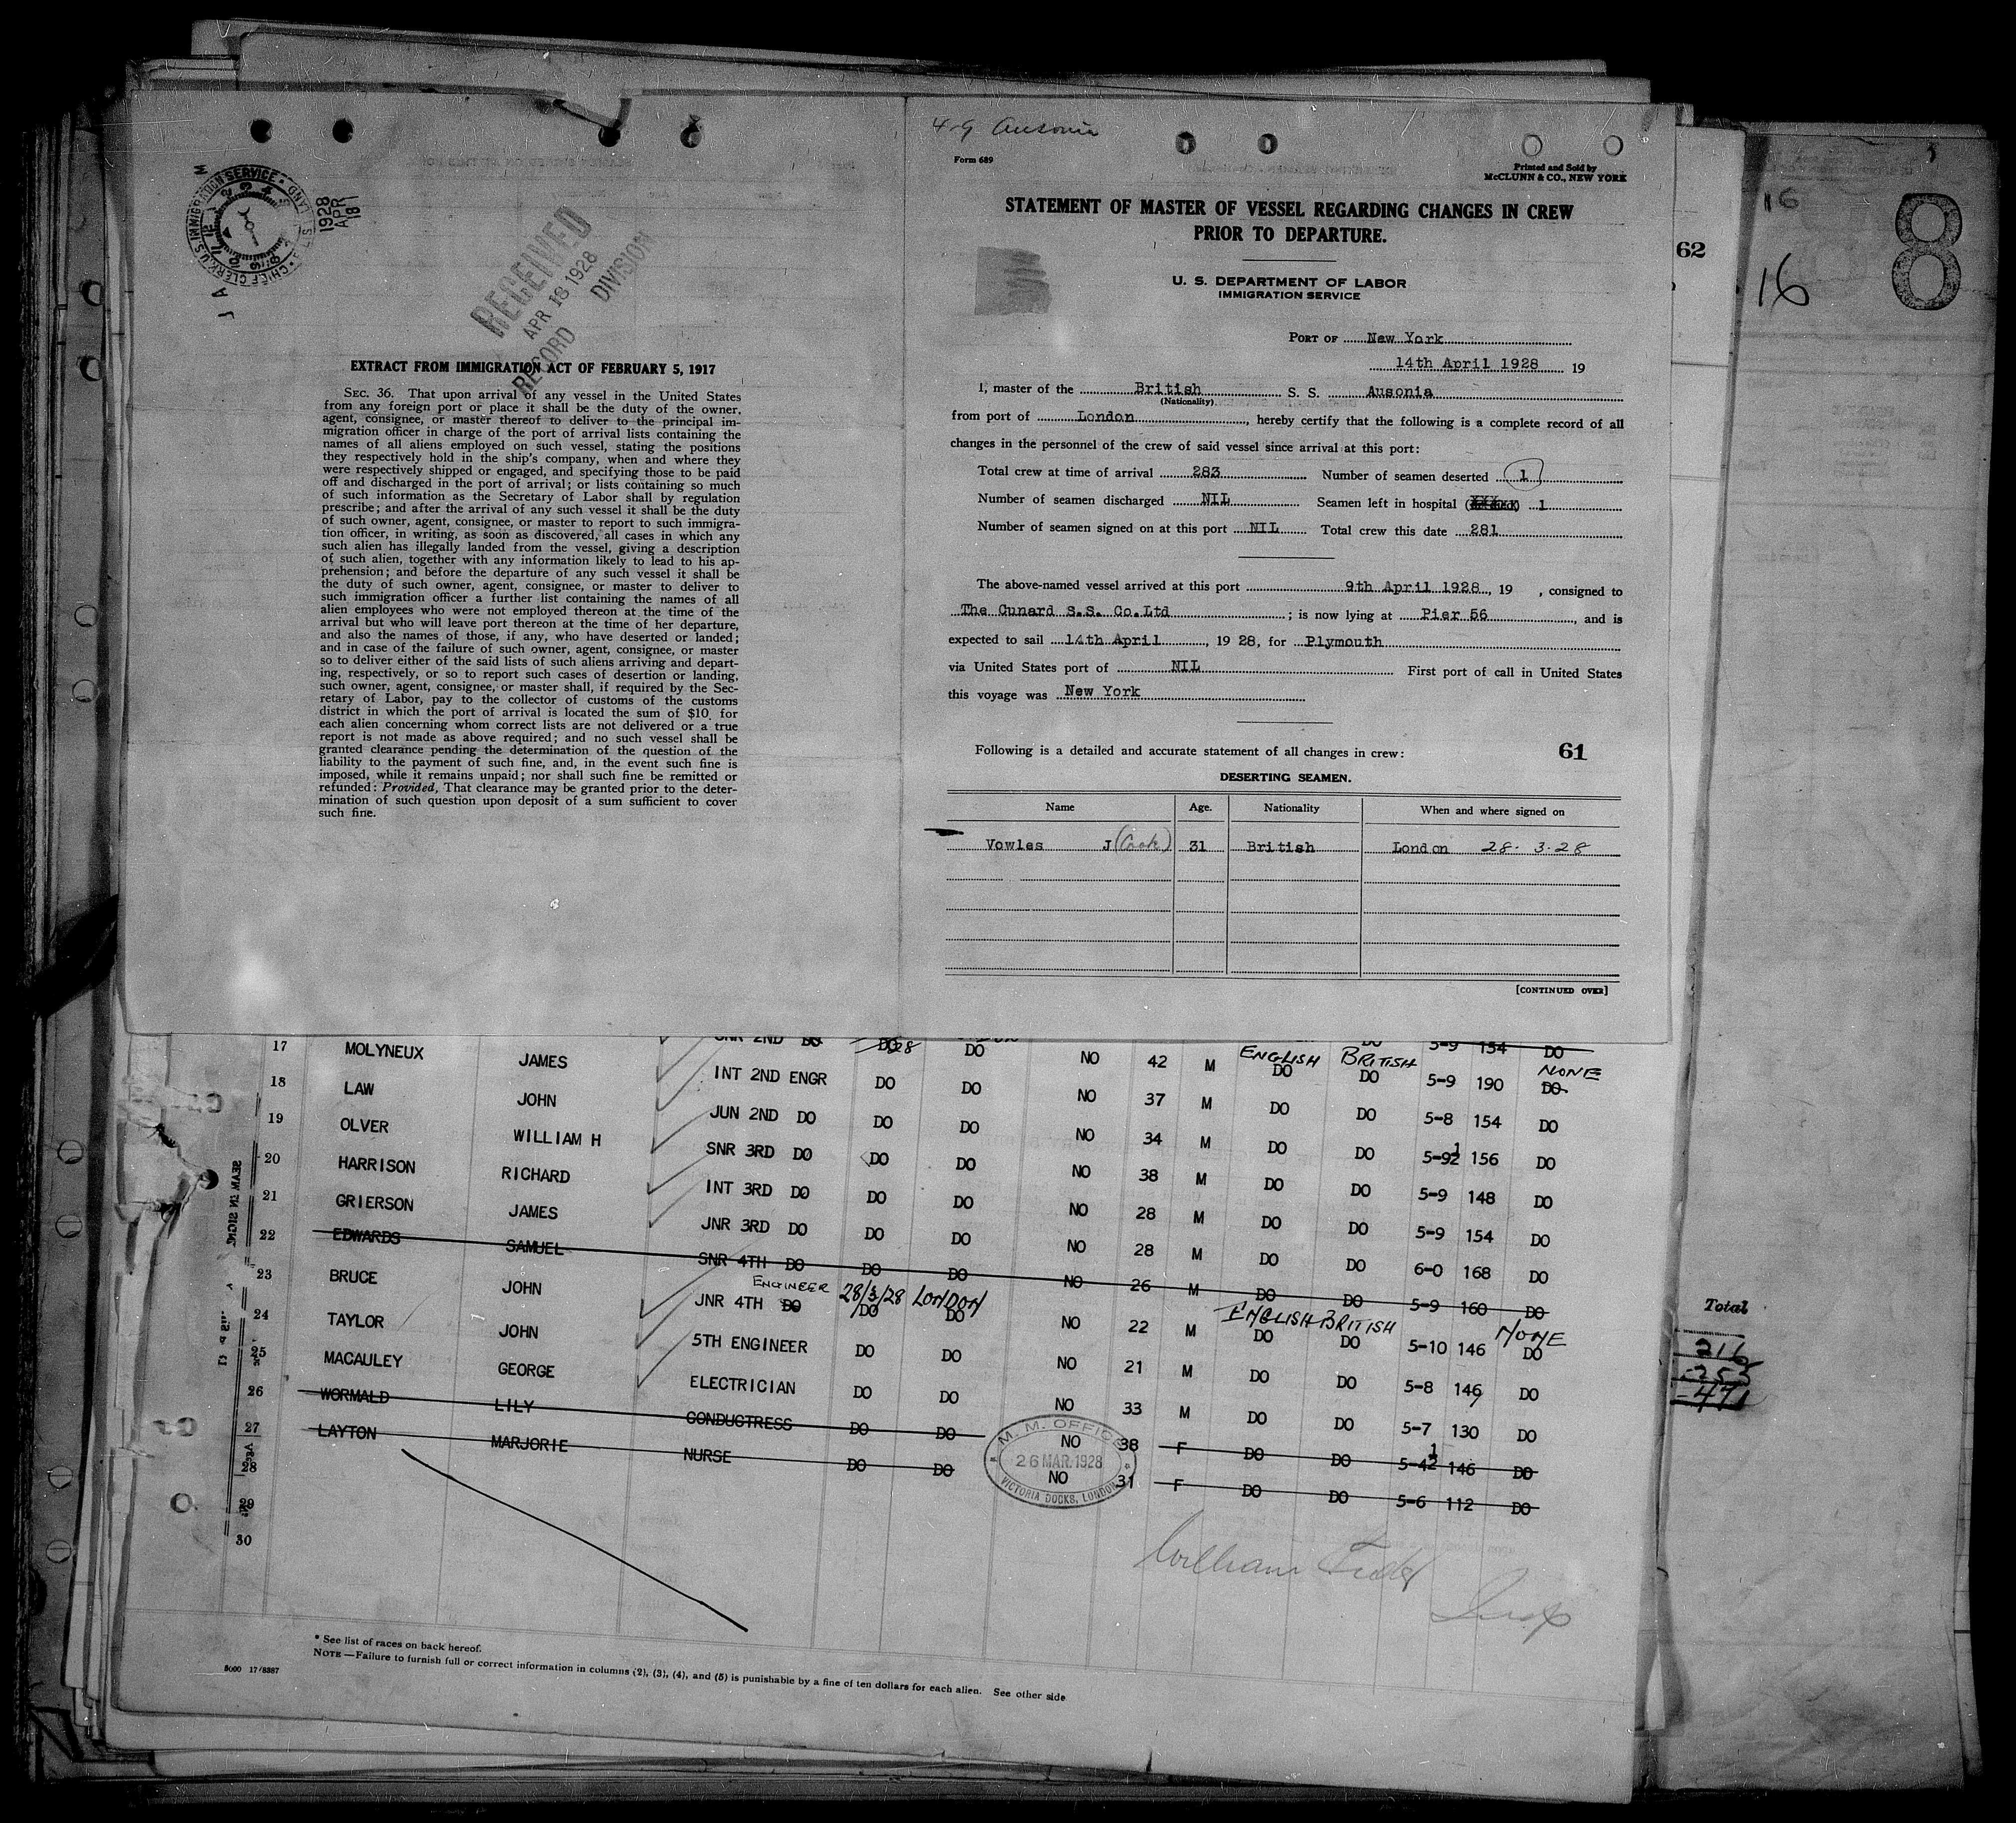 U.S. IMMIGRATION SERVICE
CHIEF CLERK
1928
APR
18
RECEIVED
APR 18 1928
RECORD DIVISION
EXTRACT FROM IMMIGRATION ACT OF FEBRUARY 5, 1917
SEC. 36. That upon arrival of any vessel in the United States
from any foreign port or place it shall be the duty of the owner,
agent, consignee, or master thereof to deliver to the principal im-
migration officer in charge of the port of arrival lists containing the
names of all aliens employed on such vessel, stating the positions
they respectively hold in the ship's company, when and where they
were respectively shipped or engaged, and specifying those to be paid
off and discharged in the port of arrival; or lists containing so much
of such information as the Secretary of Labor shall by regulation
prescribe; and after the arrival of any such vessel it shall be the duty
of such owner, agent, consignee, or master to report to such immigra-
tion officer, in writing, as soon as discovered, all cases in which any
such alien has illegally landed from the vessel, giving a description
of such alien, together with any information likely to lead to his ap-
prehension; and before the departure of any such vessel it shall be
the duty of such owner, agent, consignee, or master to deliver to
such immigration officer a further list containing the names of all
alien employees who were not employed thereon at the time of the
arrival but who will leave port thereon at the time of her departure,
and also the names of those, if any, who have deserted or landed;
and in case of the failure of such owner, agent, consignee, or master
so to deliver either of the said lists of such aliens arriving and depart-
ing, respectively, or so to report such cases of desertion or landing,
such owner, agent, consignee, or master shall, if required by the Sec-
retary of Labor, pay to the collector of customs of the customs
district in which the port of arrival is located the sum of $10 for
each alien concerning whom correct lists are not delivered or a true
report is not made as above required; and no such vessel shall be
granted clearance pending the determination of the question of the
liability to the payment of such fine, and, in the event such fine is
imposed, while it remains unpaid; nor shall such fine be remitted or
refunded: Provided, That clearance may be granted prior to the deter-
mination of such question upon deposit of a sum sufficient to cover
such fine.
4-9 Ausonia
Form 689
Printed and Sold by
McCLUNN & CO., NEW YORK
STATEMENT OF MASTER OF VESSEL REGARDING CHANGES IN CREW
PRIOR TO DEPARTURE.
U. S. DEPARTMENT OF LABOR
IMMIGRATION SERVICE
PORT OF New York
14th April 1928 19
I, master of the British S. S. Ausonia
(Nationality)
from port of London, hereby certify that the following is a complete record of all
changes in the personnel of the crew of said vessel since arrival at this port:
Total crew at time of arrival 283 Number of seamen deserted 1
Number of seamen discharged NIL Seamen left in hospital 1
Number of seamen signed on at this port NIL Total crew this date 281
The above-named vessel arrived at this port 9th April 1928, 19 , consigned to
The Cunard S.S. Co.Ltd ; is now lying at Pier 56, and is
expected to sail 14th April, 19 28, for Plymouth
via United States port of NIL First port of call in United States
this voyage was New York
Following is a detailed and accurate statement of all changes in crew: 61
DESERTING SEAMEN.
Name Age. Nationality When and where signed on
Vowles J (Cook) 31 British London 28. 3. 28
[CONTINUED OVER]
62
16
16
8
17 MOLYNEUX JAMES INT 2ND ENGR DO DO NO 42 M ENGLISH DO BRITISH DO 5-9 190 NONE DO
18 LAW JOHN JUN 2ND DO DO DO NO 37 M DO DO 5-8 154 DO
19 OLVER WILLIAM H SNR 3RD DO DO DO NO 34 M DO DO 5-9½ 156 DO
20 HARRISON RICHARD INT 3RD DO DO DO NO 38 M DO DO 5-9 148 DO
21 GRIERSON JAMES JNR 3RD DO DO DO NO 28 M DO DO 5-9 154 DO
22 EDWARDS SAMUEL SNR 4TH DO DO DO NO 28 M DO DO 6-0 168 DO
23 BRUCE JOHN JNR 4TH DO ENGINEER 28/3/28 DO LONDON DO NO 26 M DO DO 5-9 160 DO
24 TAYLOR JOHN 5TH ENGINEER DO DO NO 22 M ENGLISH DO BRITISH DO 5-10 146 NONE DO
25 MACAULEY GEORGE ELECTRICIAN DO DO NO 21 M DO DO 5-8 146 DO
26 WORMALD LILY CONDUCTRESS DO DO NO 33 M DO DO 5-7 130 DO
27 LAYTON MARJORIE NURSE DO DO NO 38 F DO DO 5-4½ 146 DO
28 NO 31 F DO DO 5-6 112 DO
29
30
M. M. OFFICE
26 MAR. 1928
VICTORIA DOCKS, LONDON
William
Insp
Total
216
253
471
* See list of races on back hereof.
NOTE—Failure to furnish full or correct information in columns (2), (3), (4), and (5) is punishable by a fine of ten dollars for each alien. See other side
5000 17/8387